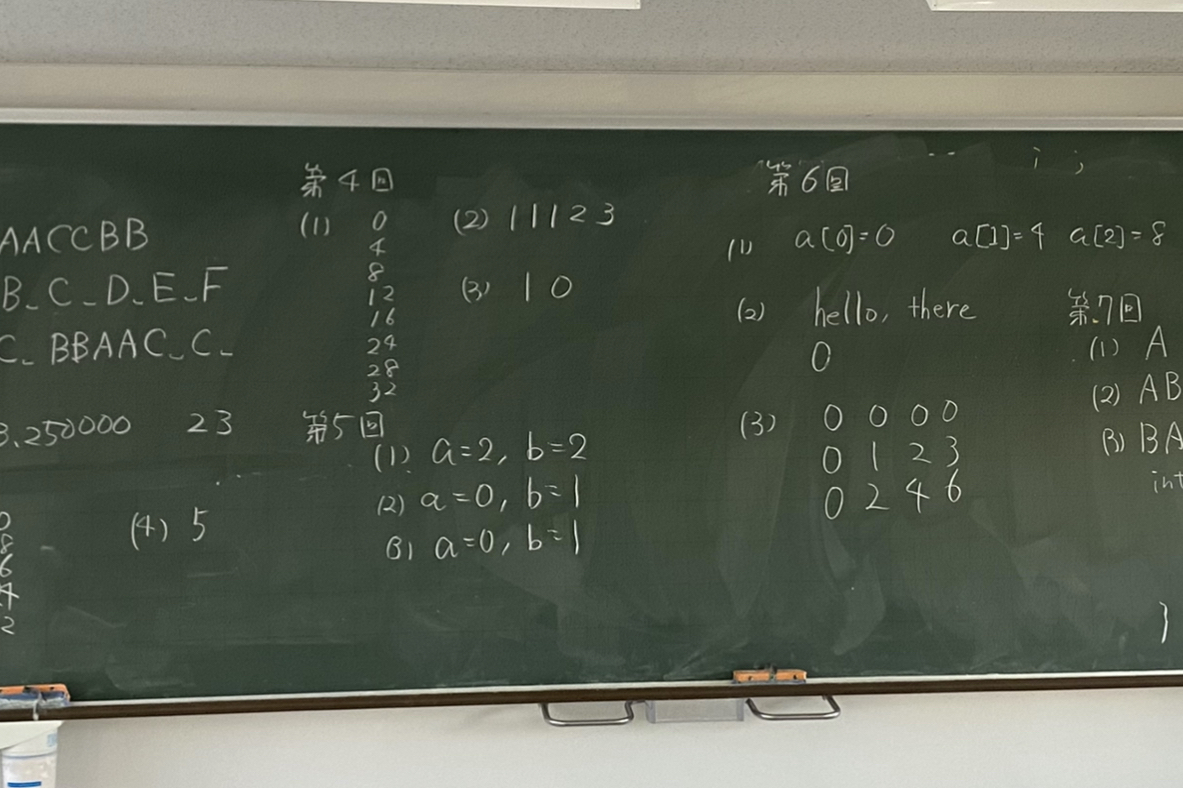 AACCBB
B_C_D_E_F
C_BBAAC_C_
3.250000 23
0
8
6
4
2
(4) 5
第4回
(1) 0
4
8
12
16
24
28
32
(2) 11123
(3) 10
第5回
(1) a=2, b=2
(2) a=0, b=1
(3) a=0, b=1
i ;
第6回
(1) a[0]=0 a[1]=4 a[2]=8
(2) hello, there
0
(3) 0 0 0 0
0 1 2 3
0 2 4 6
第7回
(1) A
(2) AB
(3) BA
int
}